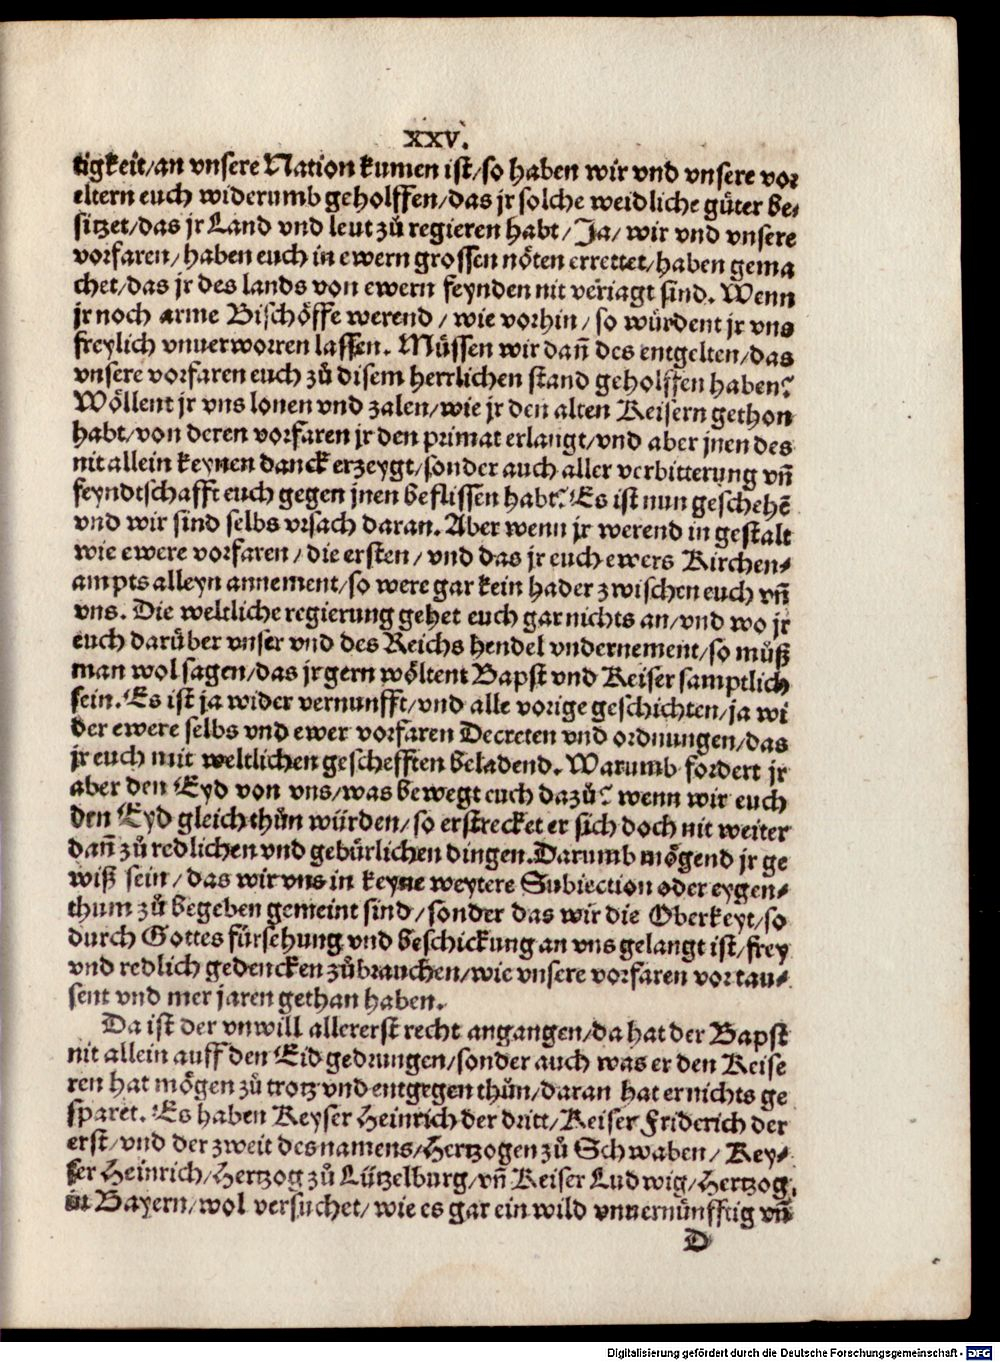 XXV.
tigkeit/an vnsere Nation kumen ist/so haben wir vnd vnsere vor
eltern euch widerumb geholffen/das jr solche weidliche güter be⸗
sitzet/das jr Land vnd leut zů regieren habt/Ja/wir vnd vnsere
vorfaren/haben euch in ewern grossen nöten errettet/haben gema
chet/das jr des lands von ewern feynden nit veriagt sind. Wenn
jr noch arme Bischöffe werend/wie vorhin/so würdent jr vns
freylich vnuerworren lassen. Müssen wir dañ des entgelten/das
vnsere vorfaren euch zů disem herrlichen stand geholffen haben?
Wöllent jr vns lonen vnd zalen/wie jr den alten Keisern gethon
habt/von deren vorfaren jr den primat erlangt/vnd aber jnen des
nit allein keynen danck erzeygt/sonder auch aller verbitterung vñ
feyndtschafft euch gegen jnen beflissen habt? Es ist nun geschehẽ
vnd wir sind selbs vrsach daran. Aber wenn jr werend in gestalt
wie ewere vorfaren/die ersten/vnd das jr euch ewers Kirchen⸗
ampts alleyn annement/so were gar kein hader zwischen euch vñ
vns. Die weltliche regierung gehet euch gar nichts an/vnd wo jr
euch darüber vnser vnd des Reichs hendel vndernement/so můß
man wol sagen/das jr gern wöltent Bapst vnd Keiser samptlich
sein. Es ist ja wider vernunfft/vnd alle vorige geschichten/ja wi
der ewere selbs vnd ewer vorfaren Decreten vnd ordnungen/das
jr euch mit weltlichen geschefften beladend. Warumb fordert jr
aber den Eyd von vns/was bewegt euch dazů? wenn wir euch
den Eyd gleich thůn würden/so erstrecket er sich doch nit weiter
dañ zů redlichen vnd gebürlichen dingen. Darumb mögend jr ge
wiß sein/das wir vns in keyne weytere Subiection oder eygen⸗
thum zů begeben gemeint sind/sonder das wir die Oberkeyt/so
durch Gottes fürsehung vnd beschickung an vns gelangt ist/frey
vnd redlich gedencken zůbrauchen/wie vnsere vorfaren vor tau⸗
sent vnd mer jaren gethan haben.
Da ist der vnwill allererst recht angangen/da hat der Bapst
nit allein auff den Eid gedrungen/sonder auch was er den Keise
ren hat mögen zů trotz vnd entgegen thůn/daran hat er nichts ge
sparet. Es haben Keyser Heinrich der dritt/Keiser Friderich der
erst/vnd der zweit des namens/Hertzogen zů Schwaben/Key⸗
ser Heinrich/Hertzog zů Lützelburg/vñ Keiser Ludwig/Hertzog
in Bayern/wol versuchet/wie es gar ein wild vnuernünfftig vñ
D
Digitalisierung gefördert durch die Deutsche Forschungsgemeinschaft - DFG